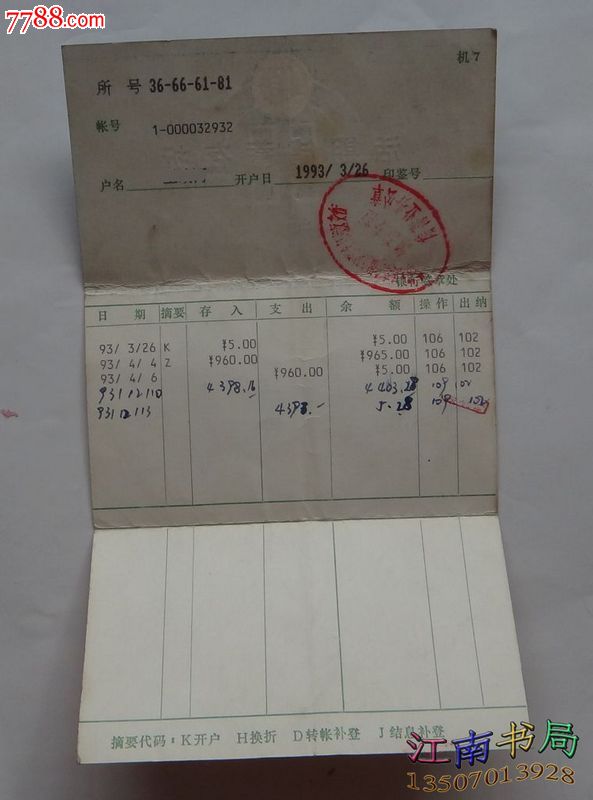 7788.com
机7
所 号 36-66-61-81
帐号 1-000032932
户名 开户日 1993/ 3/26 印鉴号
日 期 摘要 存 入 支 出 余 额 操作 出纳
93/ 3/26 K ¥5.00 ¥5.00 106 102
93/ 4/ 4 Z ¥960.00 ¥965.00 106 102
93/ 4/ 6 ¥960.00 ¥5.00 106 102
93/12/10 4398.16 4403.28 109 102
93/12/13 4398.— 5.28 109 102
摘要代码：K开户 H换折 D转帐补登 J结息补登
江南书局
13507013928